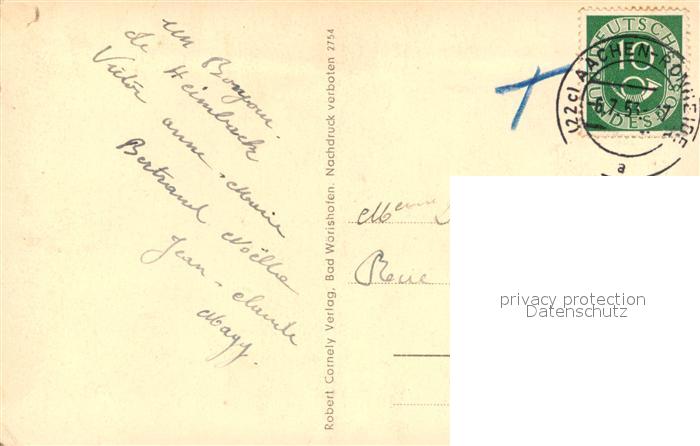 un Bonjour.
de Heimbach
Victor Anne-Marie
Bertrand Noëlla
Jean-Claude
Magy.
Robert Cornely Verlag, Bad Wörishofen. Nachdruck verboten 2754
DEUTSCHE
10
BUNDESPOST
(22c) AACHEN-ROTHE ERDE
6.7.53
a
Mme
Rue
privacy protection
Datenschutz